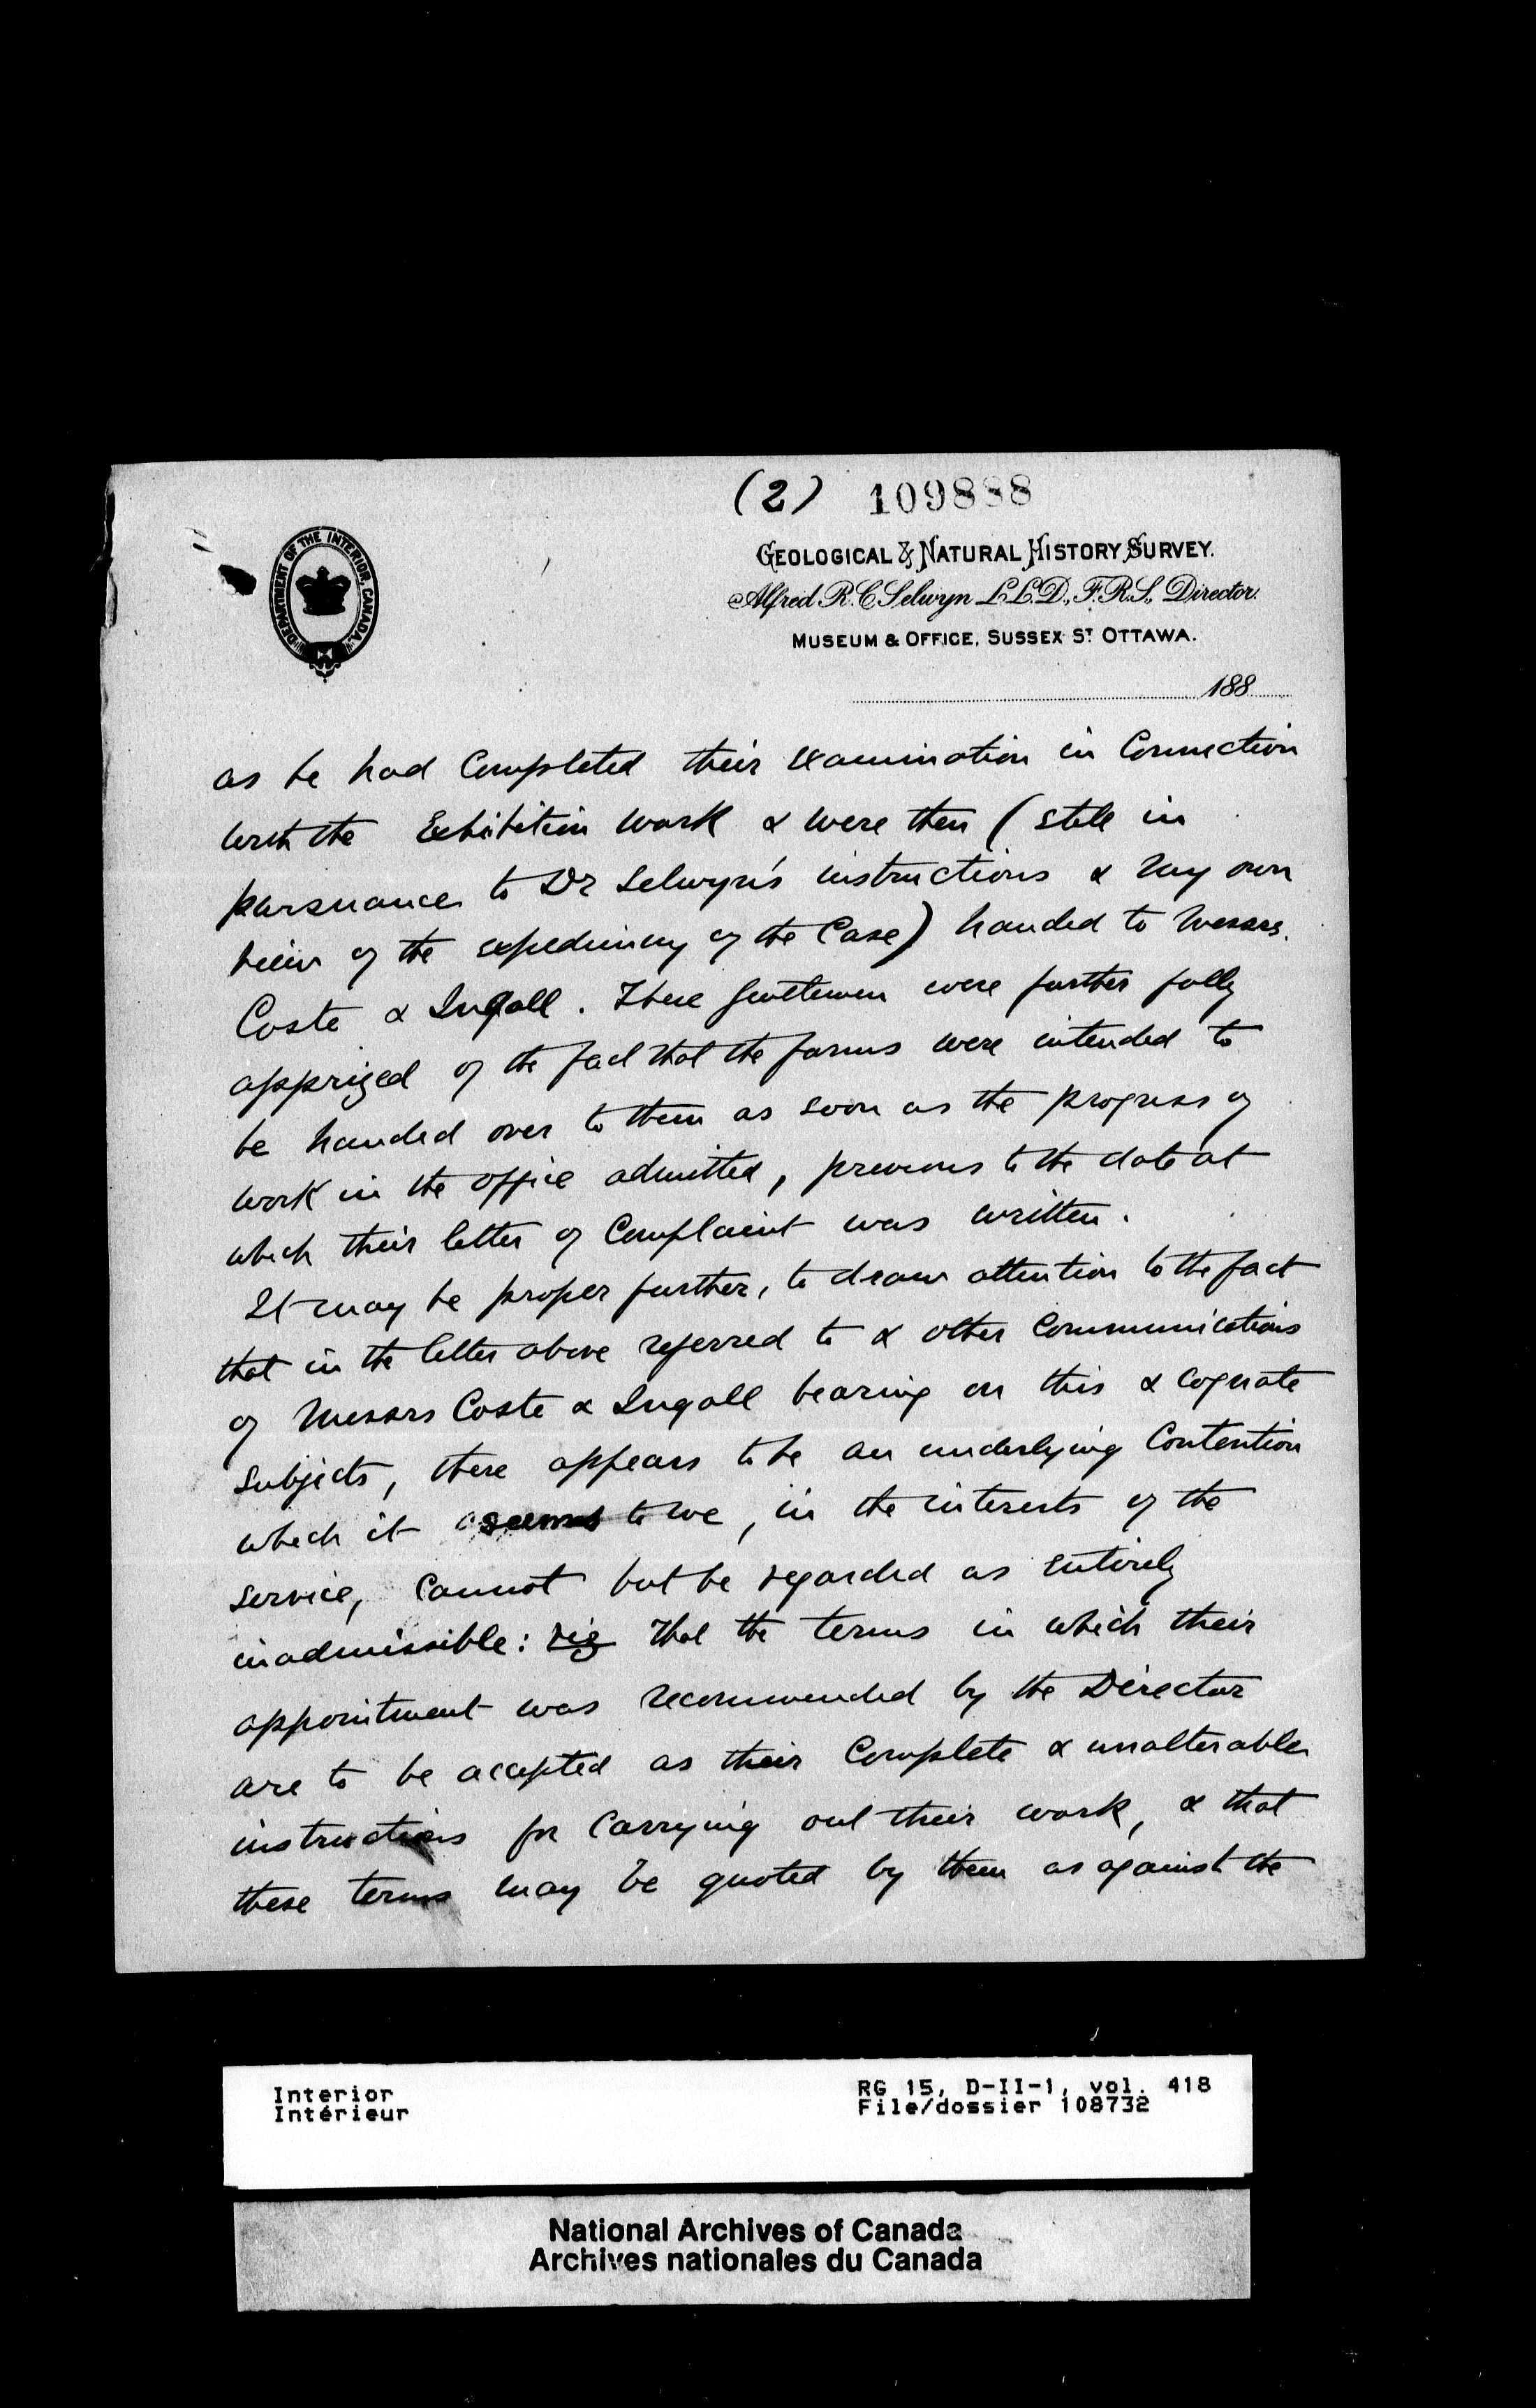 (2) 109888
DEPARTMENT OF THE INTERIOR, CANADA.
GEOLOGICAL & NATURAL HISTORY SURVEY.
Alfred R. C. Selwyn LL.D., F.R.S., Director.
MUSEUM & OFFICE, SUSSEX ST OTTAWA.
188
as he had Completed their examination in Connection
with the Exhibition work & were then (still in
pursuance to Dr Selwyn's instructions & my own
view of the expediency of the Case) handed to Messrs.
Coste & Ingall. These gentlemen were further fully
apprized of the fact that the forms were intended to
be handed over to them as soon as the progress of
work in the office admitted, previous to the date at
which their letter of Complaint was written.
It may be proper further, to draw attention to the fact
that in the letter above referred to & other Communications
of Messrs Coste & Ingall bearing on this & Cognate
subjects, there appears to be an underlying Contention
which it seems to me, in the interests of the
service, Cannot but be regarded as entirely
inadmissible: viz That the terms in which their
appointment was recommended by the Director
are to be accepted as their Complete & unalterable
instructions for Carrying out their work, & that
these terms may be quoted by them as against the
Interior
Intérieur
RG 15, D-II-1, vol. 418
File/dossier 108732
National Archives of Canada
Archives nationales du Canada